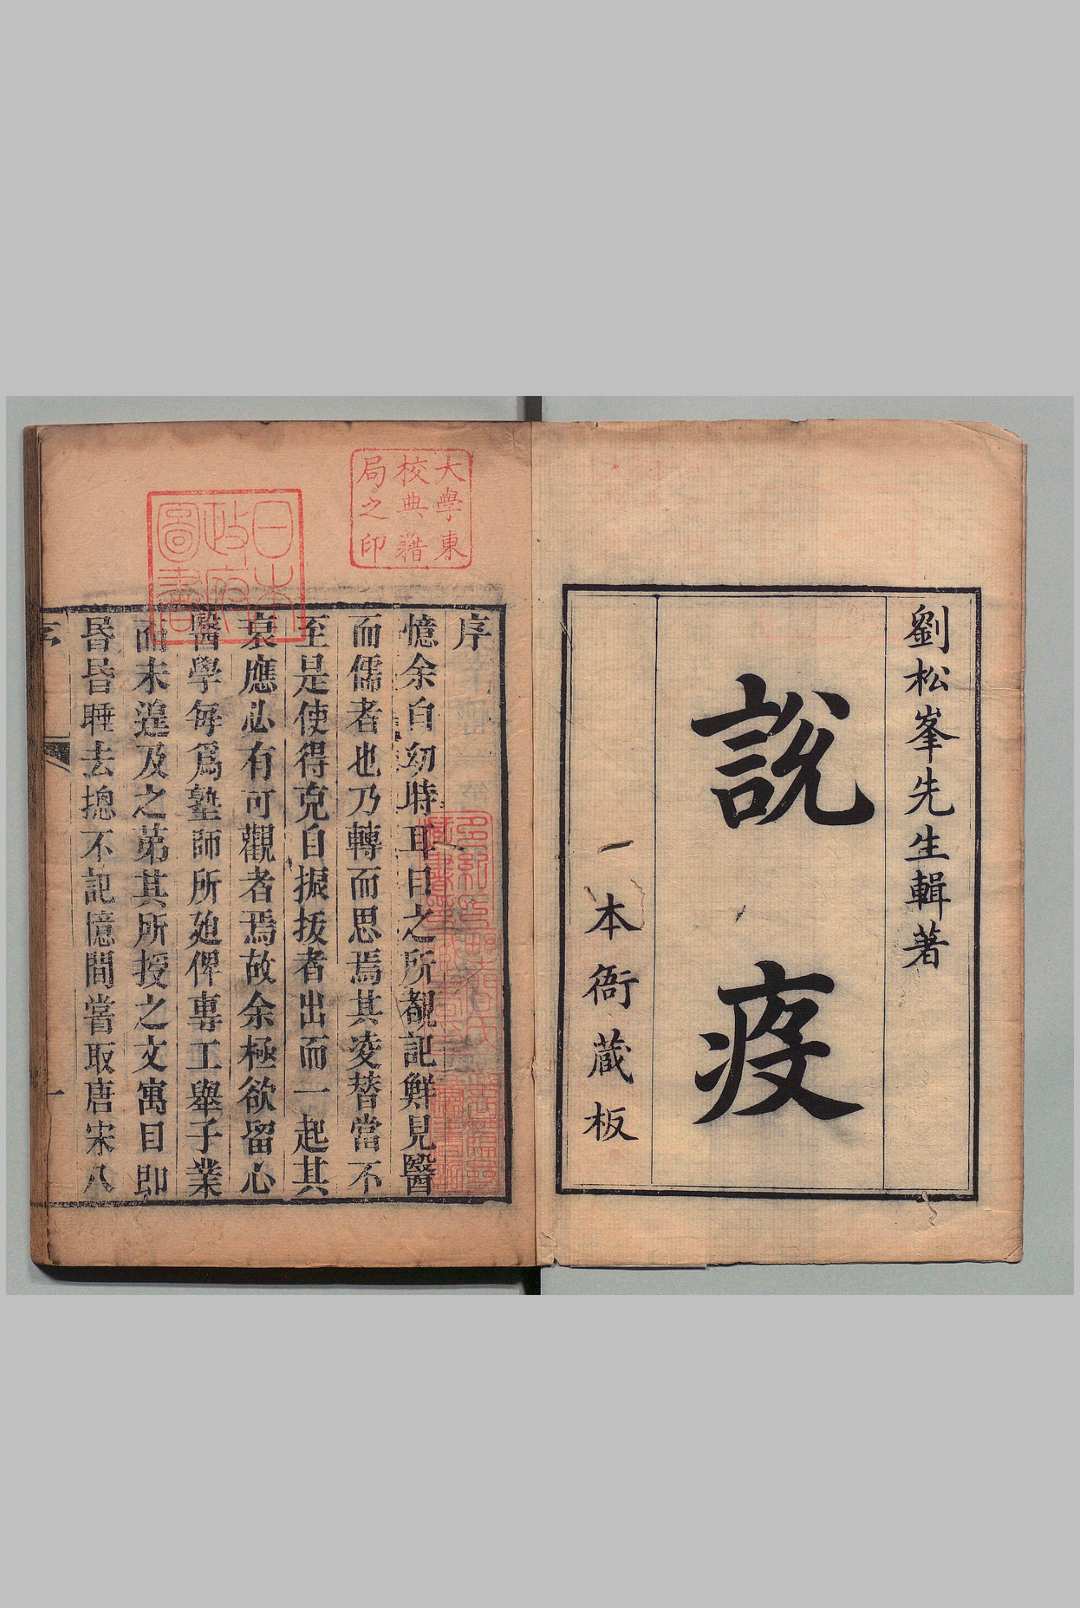 劉松峯先生輯著
說疫
一本衙蔵板
大學東
校典籍
局之印
日本
政府
圖書
序
憶余自幼時耳目之所覩記鮮見醫
而儒者也乃轉而思焉其凌替當不
至是使得克自振拔者出而一起其
衰應必有可觀者焉故余極欲留心
醫學每爲塾師所廹俾專工舉子業
而未遑及之第其所授之文寓目即
昬昬睡去摠不記憶間嘗取唐宋八
序
一